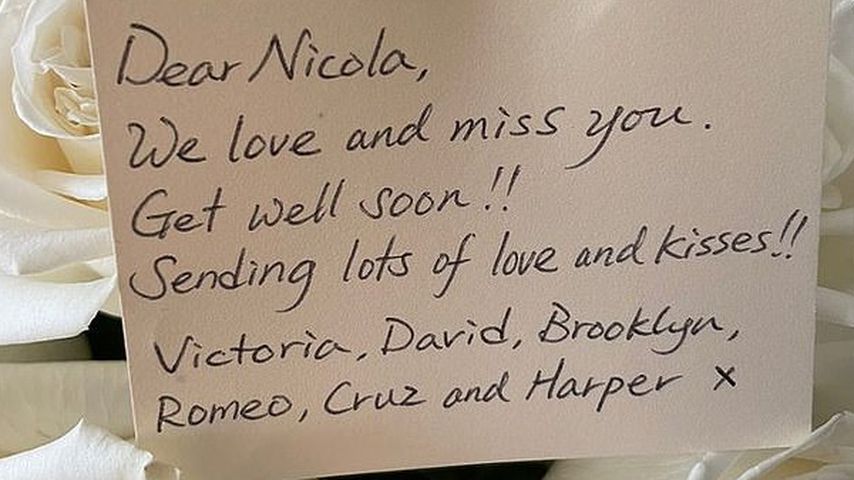 Dear Nicola,
We love and miss you.
Get well soon!!
Sending lots of love and kisses!!
Victoria, David, Brooklyn,
Romeo, Cruz and Harper x